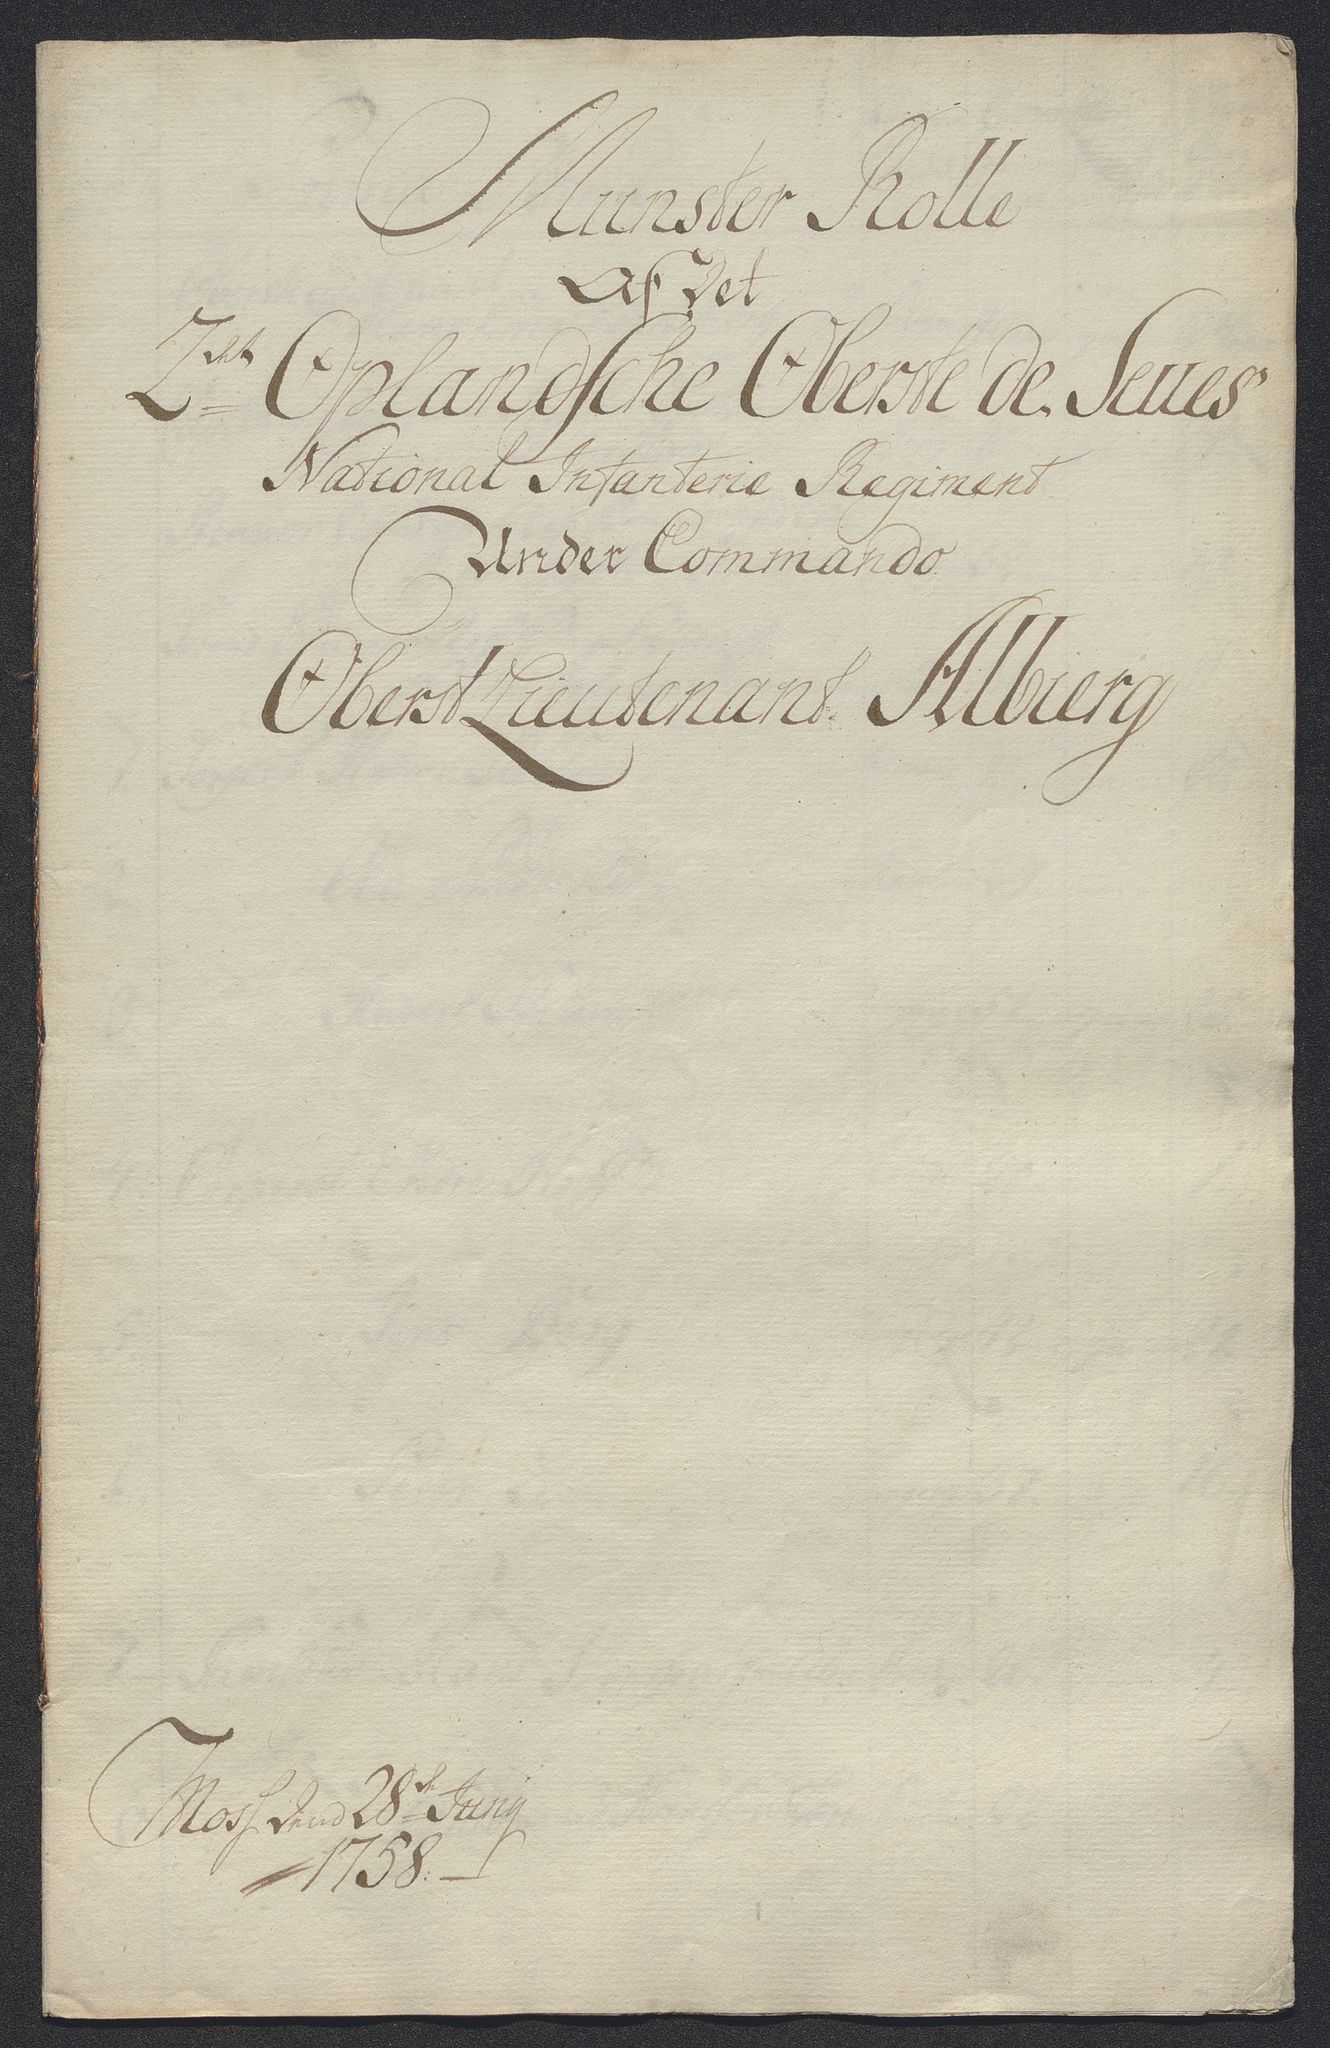 Munster Rolle
Af Det
2det Oplandsche Oberste de Seues
National Infanterie Regiment
Under Commando
Oberst Lieutenant Albierg
Moss dend 28de Junij
1758.